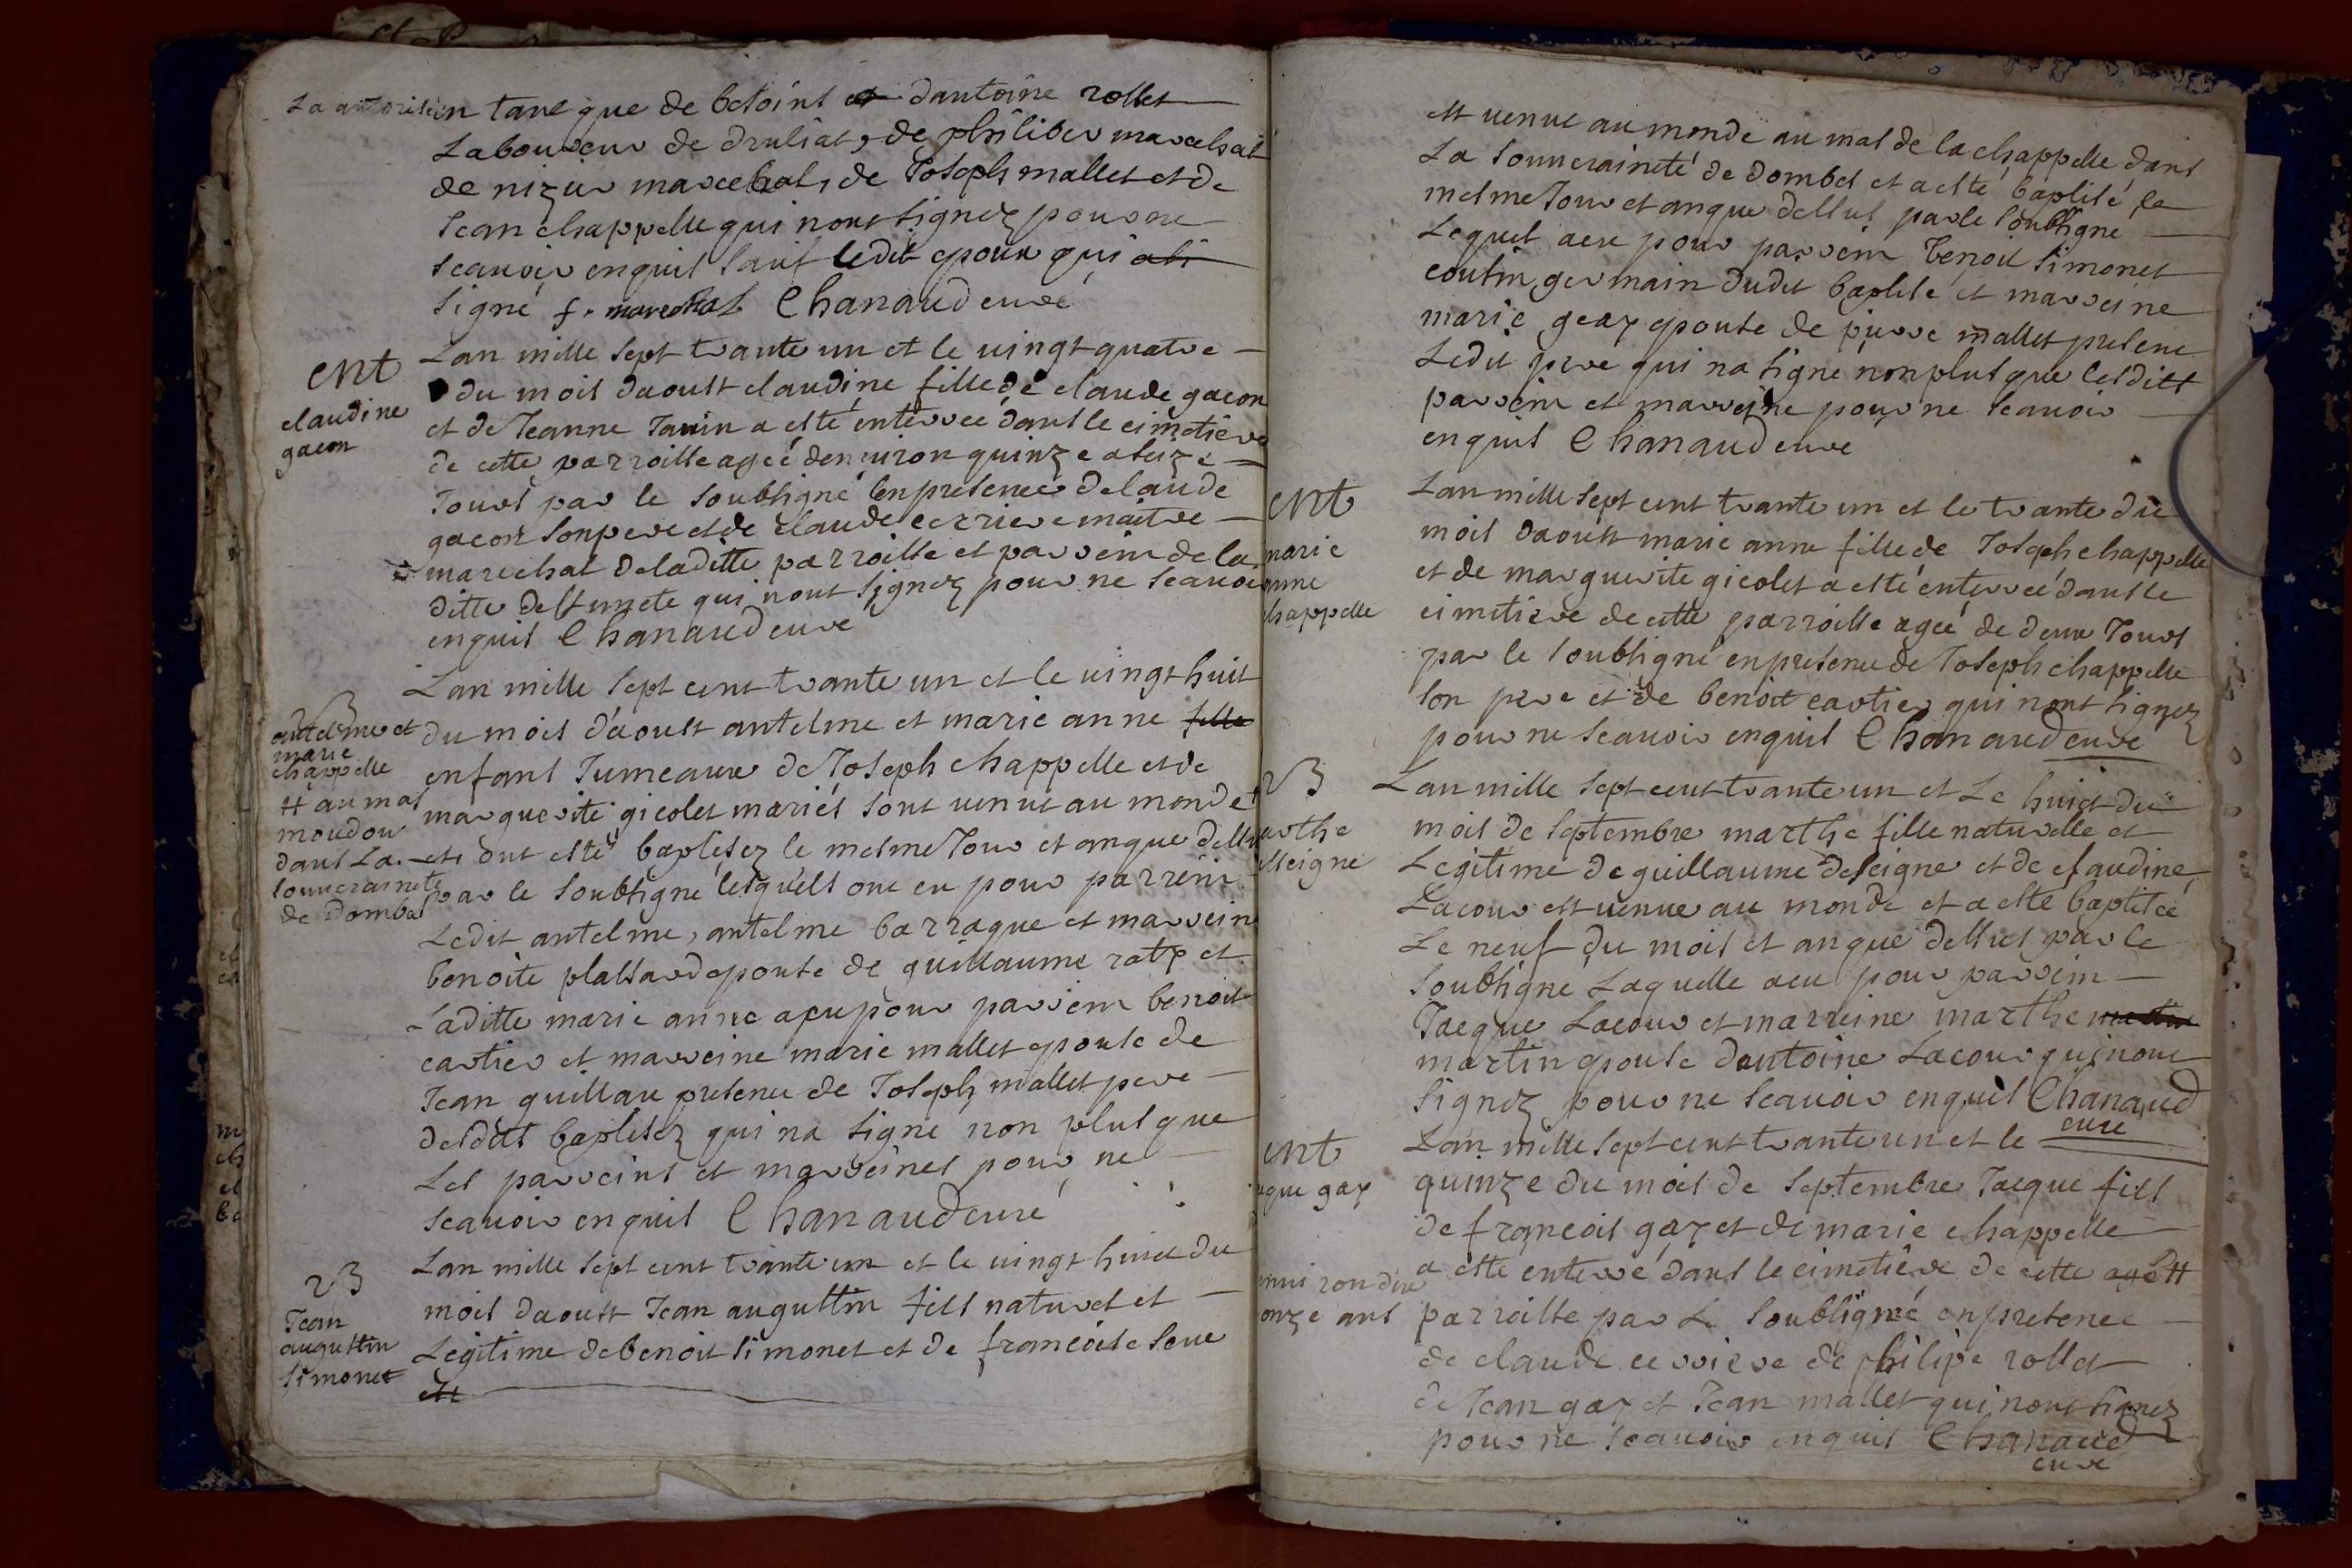 La autorise en tant que de besoins et dantoine rollet
Laboureur de druliat, de philiber marechal
de nizur marechal, de Joseph mallet et de
Jean chappelle qui nont signez pour ne
scauoir enquis sauf ledit epoux qui a
signé f. marechal Chanaud curé
ent
claudine
gacon
Lan mille sept trante un et le uingt quatre
du mois daoust claudine fille de claude gacon
et de Jeanne Janin a esté enterree dans le cimetiere
de cette parroisse agée denuiron quinze a seize
Jours par le soubsigné en presence de claude
gacon son pere et de claude cerriere maitre
marechal de laditte parroisse et parrein de la
ditte deffuncte qui nont signez pour ne scauoir
enquis Chanaud curé
Lan mille sept cent trante un et le uingt huit
B
antelme et
marie
chappelle
du mois daoust antelme et marie anne fille
enfans Jumeaux de Joseph chappelle et de
marguerite gicolet mariés sont uenus au monde #
# au mas
moudon
dans La
souueraineté
de dombes
et ont esté baptisez le mesme Jour et an que dessus
par le soubsigné lesquels ont eu pour parrein
Ledit antelme, antelme barraque et marreine
benoite plassard epouse de guillaume raty et
Laditte marie anne a eu pour parrein benoit
cartier et marreine marie mallet epouse de
Jean guillau presence de Joseph mallet pere
desdits baptisez qui na signé non plus que
Les parreins et marreines pour ne
scauoir enquis Chanaud curé
B
Jean
augustin
simonet
Lan mille sept cent trante un et le uingt huict du
mois daoust Jean augustin fils naturel et
Legitime de benoit simonet et de francoise seue
est
est uenut au monde au mas de la chappelle dans
La souueraineté de dombes et a esté baptisé le
mesme Jour et an que dessus par le soubsigné
Lequel a eu pour parrein benoit simonet
cousin germain dudit baptisé et marreine
marie geay epouse de pierre mallet presence
Ledit pere qui na signé non plus que lesdits
parrein et marreine pour ne scauoir
enquis Chanaud curé
ent
marie
anne
chappelle
Lan mille sept cent trante un et le trante du
mois daoust marie anne fille de Joseph chappelle
et de marguerite gicolet a esté enterree dans le
cimetiere de cette parroisse agée de deux Jours
par le soubsigné en presence de Joseph chappelle
son pere et de benoit cartier qui nont signez
pour ne scauoir enquis Chanaud curé
B
marthe
desseigne
Lan mille sept cent trante un et Le huict du
mois de septembre marthe fille naturelle et
Legitime de guillaume deseigne et de claudine
Lacour est uenue au monde et a esté baptisée
Le neuf du mois et an que dessus par le
soubsigné Laquelle a eu pour parrein
Jacque Lacour et marreine marthe martin
martin epouse dantoine Lacour qui nont
signez pour ne scauoir enquis Chanaud
curé
ent
Jacque gay
Lan mille sept cent trante un et le
quinze du mois de septembre Jacque fils
de francois gay et de marie chappelle
a esté enterré dans le cimetiere de cette agé #
enuiron dix
onze ans
parroisse par Le soubsigné en presence
de claude cerriere de philipe rollet
de Jean gay et Jean mallet qui nont signez
pour ne scauoir enquis Chanaud
curé